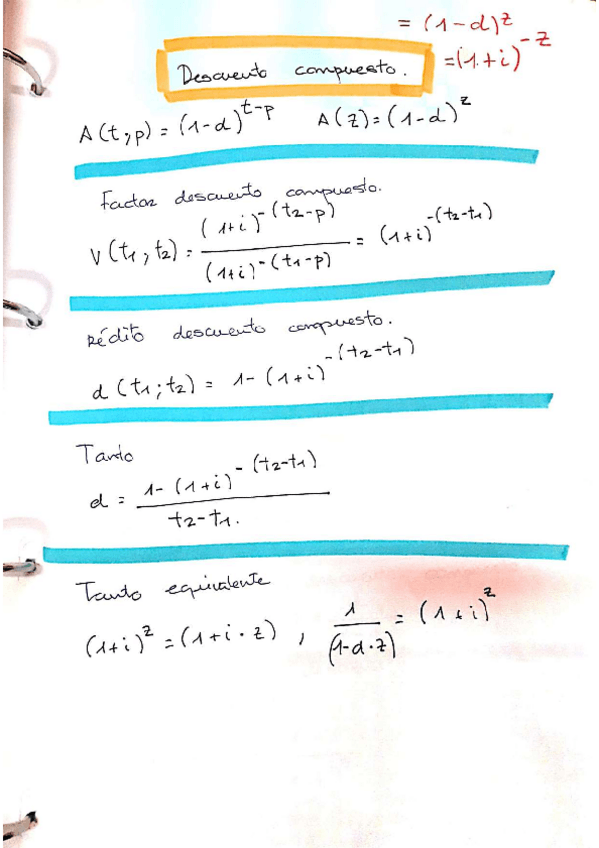 = (1-d)^z
= (1+i)^-z
Descuento compuesto.
A(t;p) = (1-d)^t-p    A(z) = (1-d)^z
Factor descuento compuesto.
v(t1;t2) = (1+i)^-(t2-p) / (1+i)^-(t1-p) = (1+i)^-(t2-t1)
Rédito descuento compuesto.
d(t1;t2) = 1-(1+i)^-(t2-t1)
Tanto
d = 1-(1+i)^-(t2-t1) / t2-t1.
Tanto equivalente
(1+i)^z = (1+i·z) , 1 / (1-d·z) = (1+i)^z